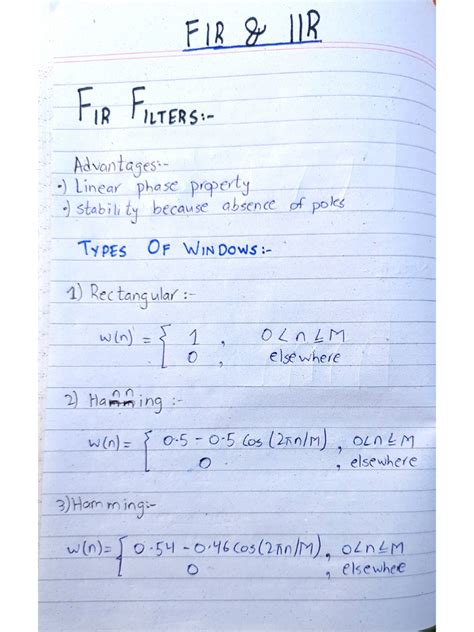 FIR & IIR
FIR FILTERS:-
Advantages:-
•) Linear phase property
•) Stability because absence of poles
TYPES OF WINDOWS:-
1) Rectangular :-
w(n) = { 1 , 0<n≤M
0 , elsewhere
2) Hanning :-
w(n) = { 0.5 - 0.5 Cos (2πn/M) , 0<n≤M
0 , elsewhere
3) Hamming:-
w(n) = { 0.54 - 0.46 Cos (2πn/M) , 0<n≤M
0 , elsewhere